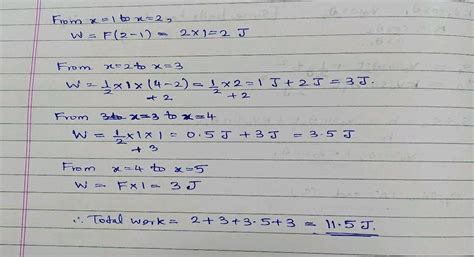 From x=1 to x=2,
W = F(2-1) = 2×1=2 J
From x=2 to x=3
W = 1/2 ×1×(4-2) = 1/2 ×2 = 1 J + 2 J = 3 J.
+2 +2
From x=3 to x=4
W = 1/2 ×1×1 = 0.5 J + 3 J = 3.5 J
+3
From x=4 to x=5
W = F×1 = 3 J
∴ Total work = 2+3+3.5+3 = 11.5 J.